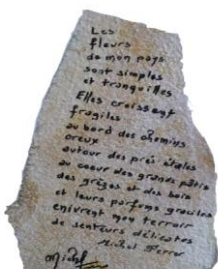 Les
fleurs
de mon pays
sont simples
et tranquilles
Elles croissent
fragiles
au bord des chemins
creux
autour des prés étales
au coeur des grands pâtis
des grèges et des bois
et leurs parfums graciles
enivrent mon terroir
de senteurs délicates
Michel
Michel